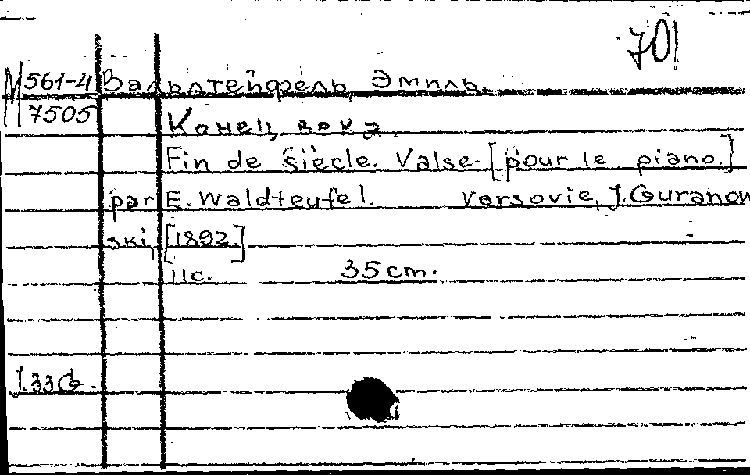 701
М 561-4 Вальдтейфель, Эмиль.
7505
Конец века.
Fin de siècle. Valse [pour le piano.]
par E. Waldteufel. Varsovie, J. Guranow
ski, [1892.]
11c. 35 cm.